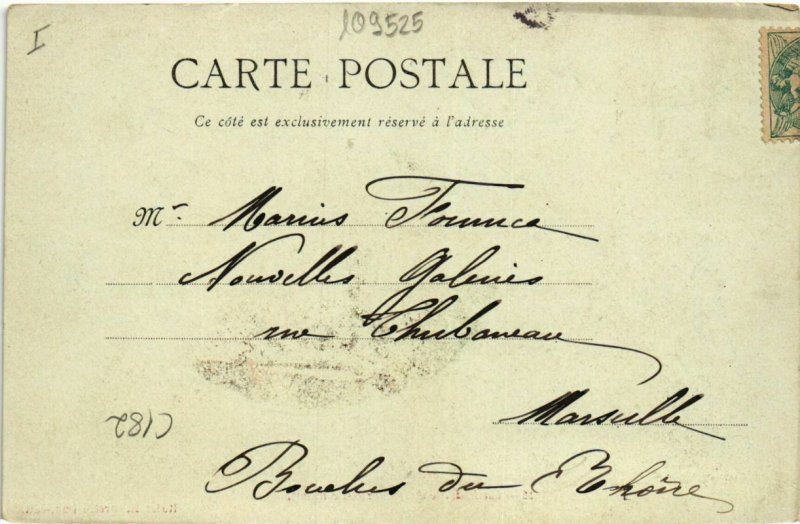 I
109525
CARTE POSTALE
Ce côté est exclusivement réservé à l'adresse
Mr Marius
Nouvelles Galeries
rue Thubaneau
Marseille
Bouches du Rhône
C182